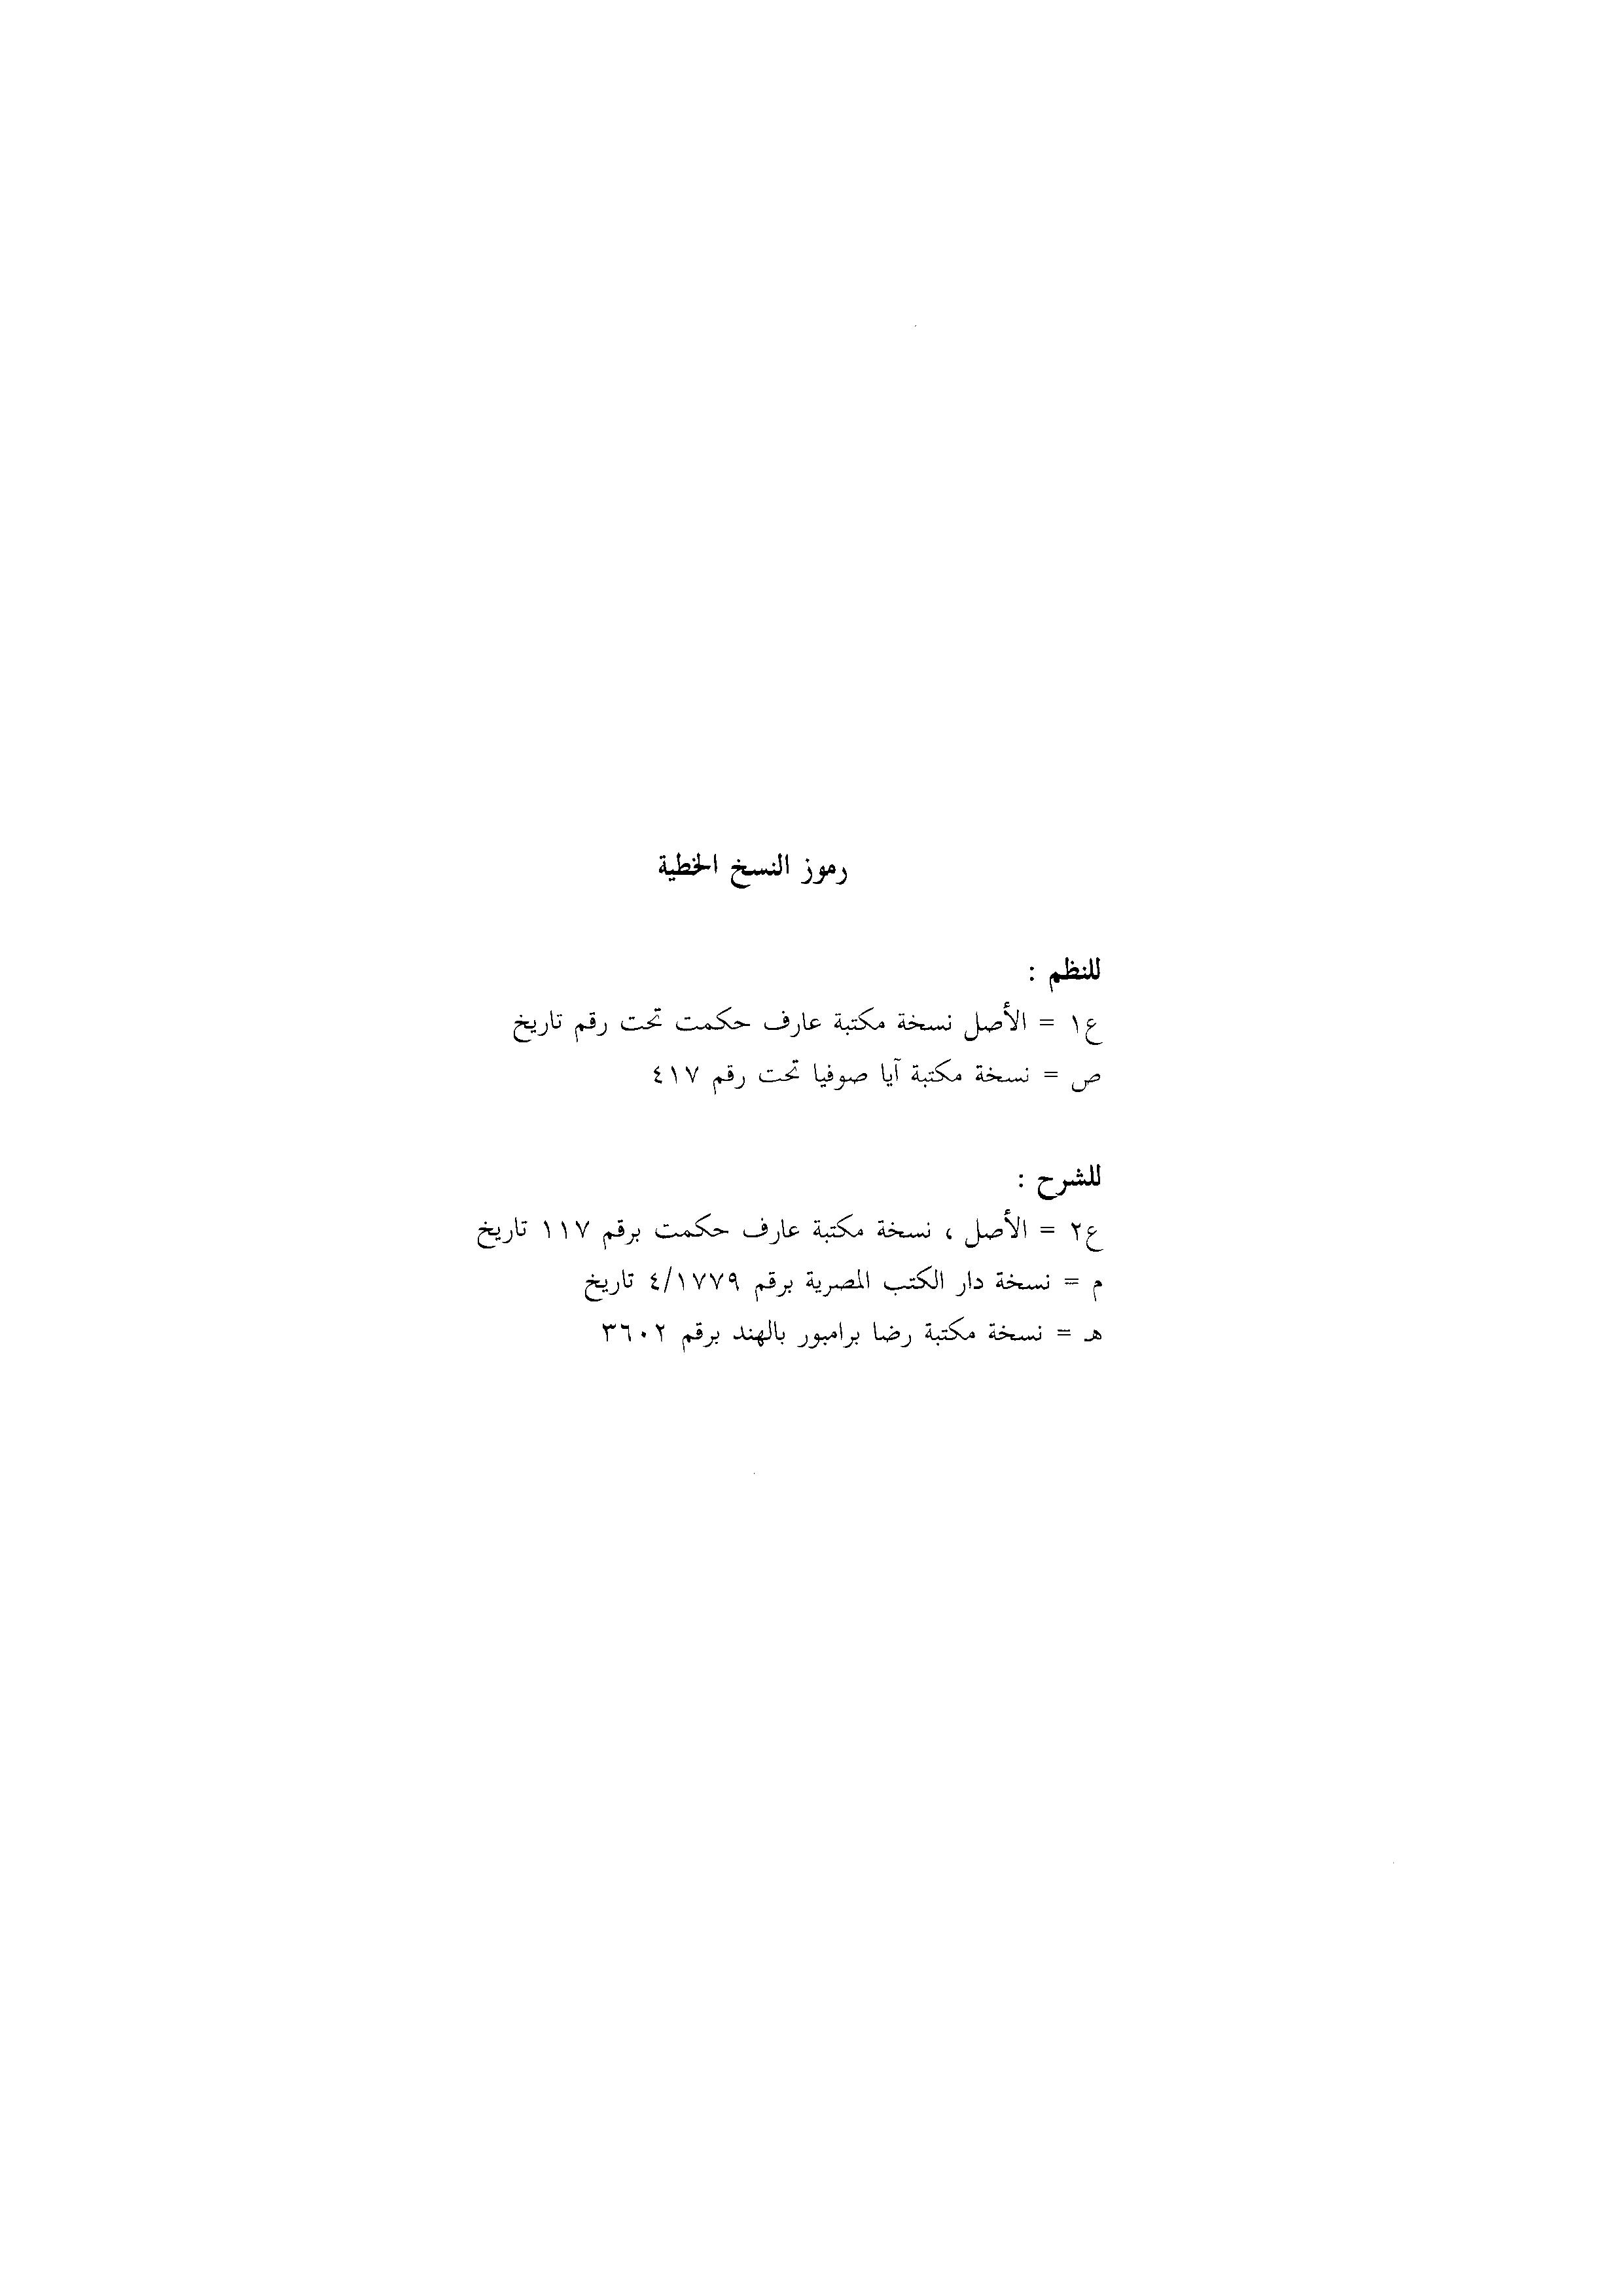 رموز النسخ الخطية
للنظم :
ع١ = الأصل نسخة مكتبة عارف حكمت تحت رقم تاريخ
ص = نسخة مكتبة آيا صوفيا تحت رقم ٤١٧
للشرح :
ع٢ = الأصل ، نسخة مكتبة عارف حكمت برقم ١١٧ تاريخ
م = نسخة دار الكتب المصرية برقم ٤/١٧٧٩ تاريخ
هـ = نسخة مكتبة رضا برامبور بالهند برقم ٣٦٠٢